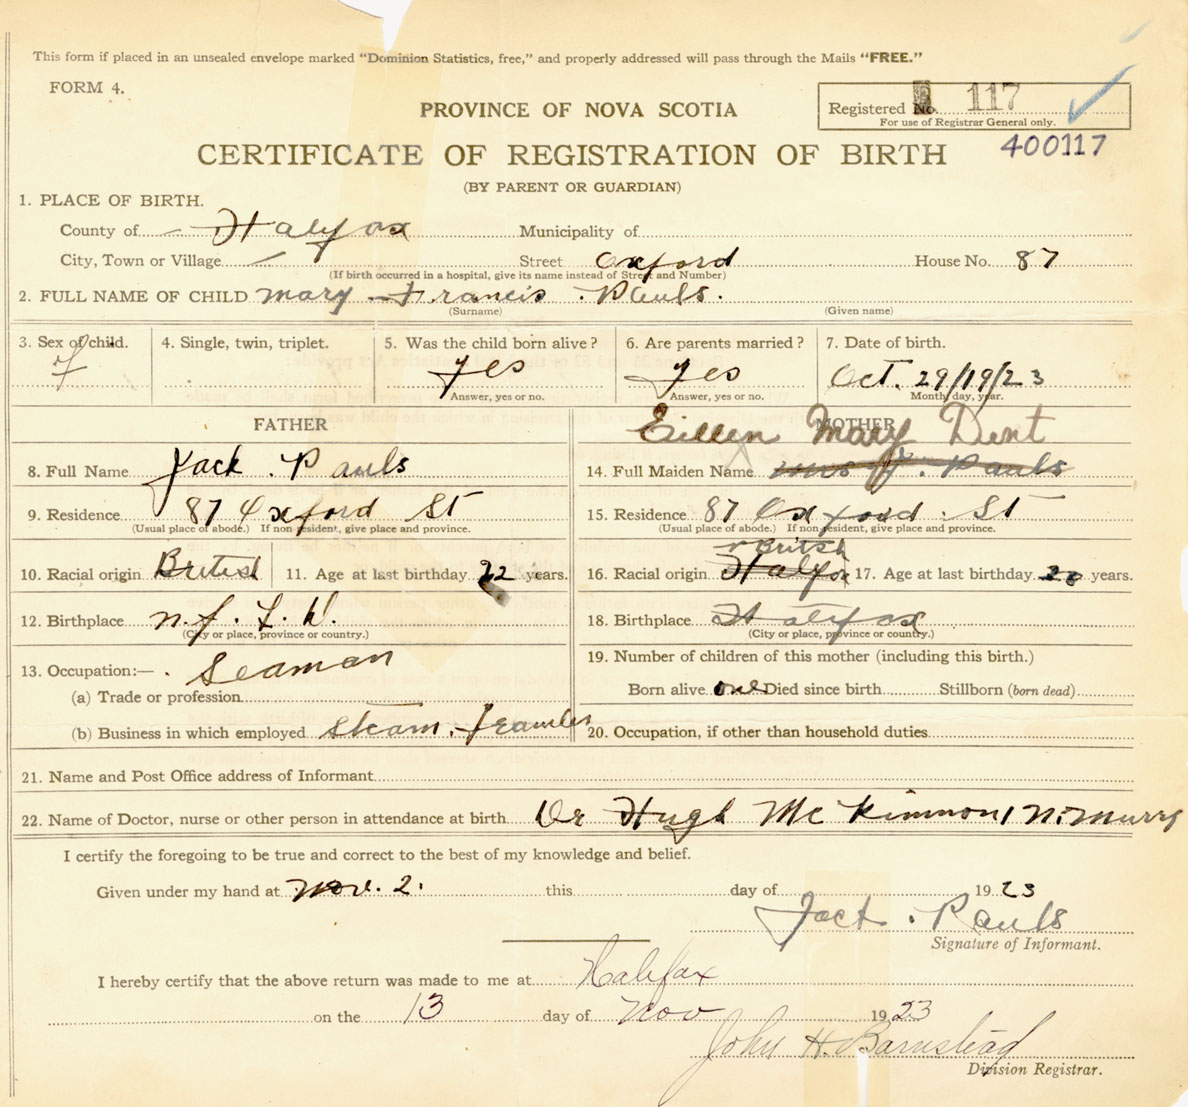 This form if placed in an unsealed envelope marked "Dominion Statistics, free," and properly addressed will pass through the Mails "FREE."
FORM 4.
PROVINCE OF NOVA SCOTIA
Registered No. 117
For use of Registrar General only.
400117
CERTIFICATE OF REGISTRATION OF BIRTH
(BY PARENT OR GUARDIAN)
1. PLACE OF BIRTH.
County of Halifax Municipality of
City, Town or Village Street Oxford House No. 87
(If birth occurred in a hospital, give its name instead of Street and Number)
2. FULL NAME OF CHILD Mary Francis Pauls.
(Surname) (Given name)
3. Sex of child. 4. Single, twin, triplet. 5. Was the child born alive? 6. Are parents married? 7. Date of birth.
F Yes Yes Oct. 29/19/23
Answer, yes or no. Answer, yes or no. Month, day, year.
FATHER MOTHER
Eillen Mary Dent
8. Full Name Jack. Pauls 14. Full Maiden Name Mrs J. Pauls
9. Residence 87 Oxford St 15. Residence 87 Oxford St
(Usual place of abode.) If non resident, give place and province. (Usual place of abode.) If non resident, give place and province.
British
10. Racial origin British 11. Age at last birthday 22 years. 16. Racial origin Halifax 17. Age at last birthday 20 years.
12. Birthplace N.f.L.D. 18. Birthplace Halifax
(City or place, province or country.) (City or place, province or country.)
13. Occupation:— Seaman 19. Number of children of this mother (including this birth.)
(a) Trade or profession Born alive one Died since birth Stillborn (born dead)
(b) Business in which employed Steam. 20. Occupation, if other than household duties
21. Name and Post Office address of Informant
22. Name of Doctor, nurse or other person in attendance at birth Dr Hugh McKinnon
I certify the foregoing to be true and correct to the best of my knowledge and belief.
Given under my hand at Nov. 2. this day of 1923
Jack. Pauls
Signature of Informant.
I hereby certify that the above return was made to me at Halifax
on the 13 day of Nov 1923
John H. Barnstead
Division Registrar.